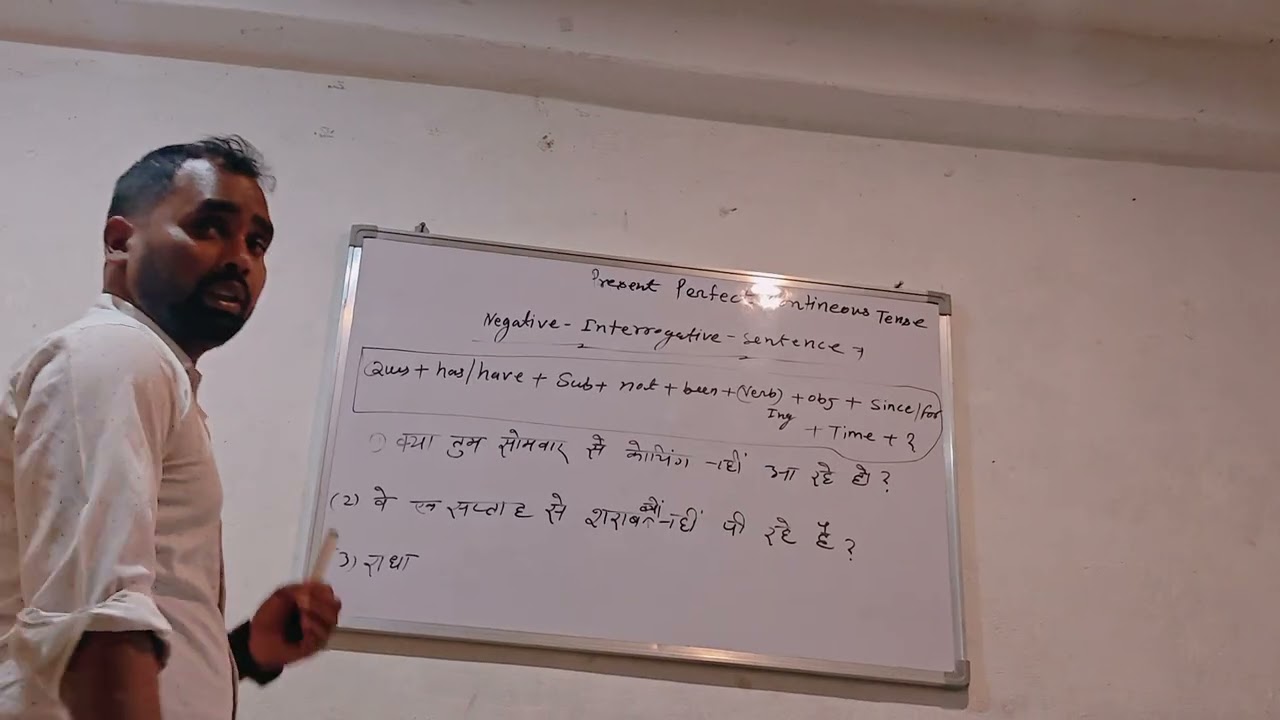 Present Perfect Contineous Tense
Negative - Interrogative - Sentence →
Ques + has/have + Sub + not + been + (Verb) + obj + Since/for
Ing
+ Time + ?
1) क्या तुम सोमवार से कोचिंग नहीं आ रहे हो ?
(2) वे एक सप्ताह से शराब क्यों नहीं पी रहे हैं ?
3) राधा